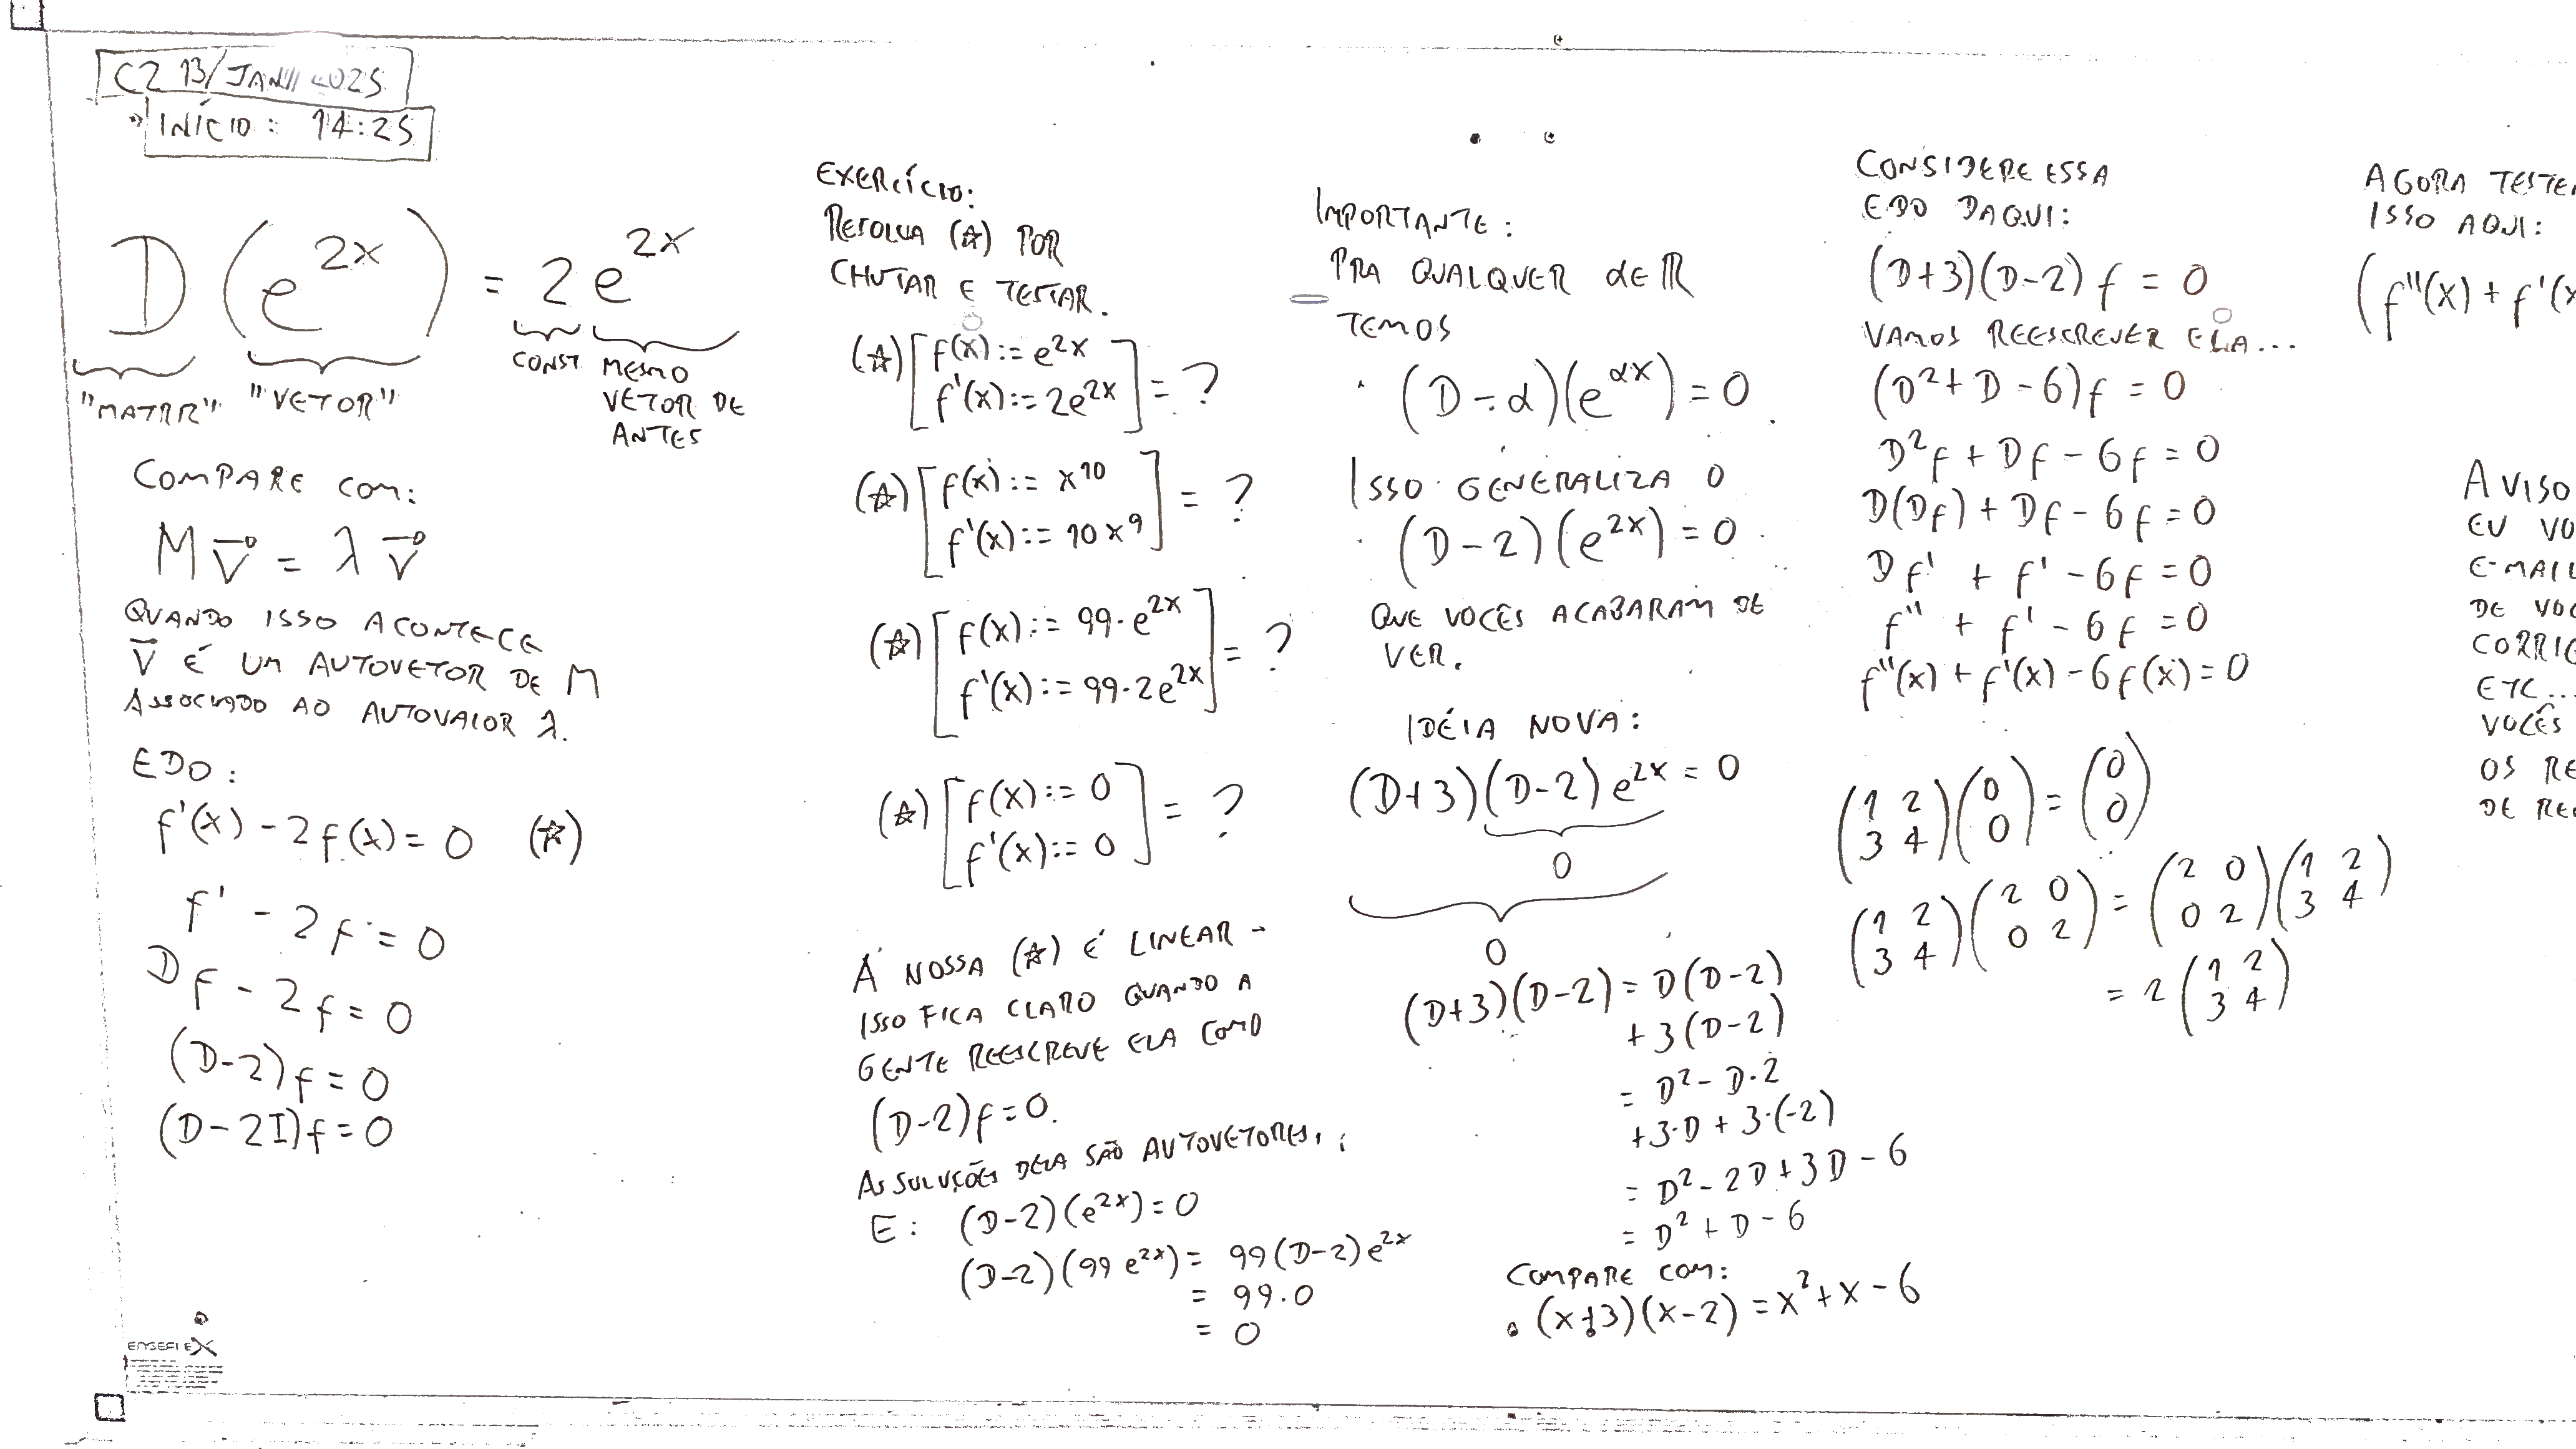 C2 13/JAN/2025
INÍCIO: 14:25
D(e^{2x}) = 2e^{2x}
"MATRIZ" "VETOR" CONST. MESMO
VETOR DE
ANTES
COMPARE COM:
M v⃗ = λ v⃗
QUANDO ISSO ACONTECE
v⃗ É UM AUTOVETOR DE M
ASSOCIADO AO AUTOVALOR λ.
EDO:
f'(x) - 2f(x) = 0 (☆)
f' - 2f = 0
Df - 2f = 0
(D-2)f = 0
(D-2I)f = 0
EXERCÍCIO:
RESOLVA (☆) POR
CHUTAR E TESTAR.
(☆)[f(x) := e^{2x}
f'(x) := 2e^{2x}] = ?
(☆)[f(x) := x^{10}
f'(x) := 10x^9] = ?
(☆)[f(x) := 99·e^{2x}
f'(x) := 99·2e^{2x}] = ?
(☆)[f(x) := 0
f'(x) := 0] = ?
A NOSSA (☆) É LINEAR -
ISSO FICA CLARO QUANDO A
GENTE REESCREVE ELA COMO
(D-2)f = 0.
AS SOLUÇÕES DELA SÃO AUTOVETORES,
E: (D-2)(e^{2x}) = 0
(D-2)(99e^{2x}) = 99(D-2)e^{2x}
= 99·0
= 0
IMPORTANTE:
PRA QUALQUER α∈ℝ
TEMOS
(D-α)(e^{αx}) = 0
ISSO GENERALIZA O
(D-2)(e^{2x}) = 0
QUE VOCÊS ACABARAM DE
VER.
IDÉIA NOVA:
(D+3)(D-2)e^{2x} = 0
0
0
(D+3)(D-2) = D(D-2)
+3(D-2)
= D²-D·2
+3·D+3·(-2)
= D²-2D+3D-6
= D²+D-6
COMPARE COM:
(x+3)(x-2) = x²+x-6
CONSIDERE ESSA
EDO DAQUI:
(D+3)(D-2)f = 0
VAMOS REESCREVER ELA...
(D²+D-6)f = 0
D²f+Df-6f = 0
D(Df)+Df-6f = 0
Df' + f' - 6f = 0
f'' + f' - 6f = 0
f''(x)+f'(x)-6f(x) = 0
(1 2
3 4)(0
0) = (0
0)
(1 2
3 4)(2 0
0 2) = (2 0
0 2)(1 2
3 4)
= 2(1 2
3 4)
AGORA TESTE
ISSO AQUI:
(f''(x)+f'(x
AVISO
EU VO
E-MAIL
DE VOC
CORRIG
ETC...
VOCÊS
OS RE
DE RE